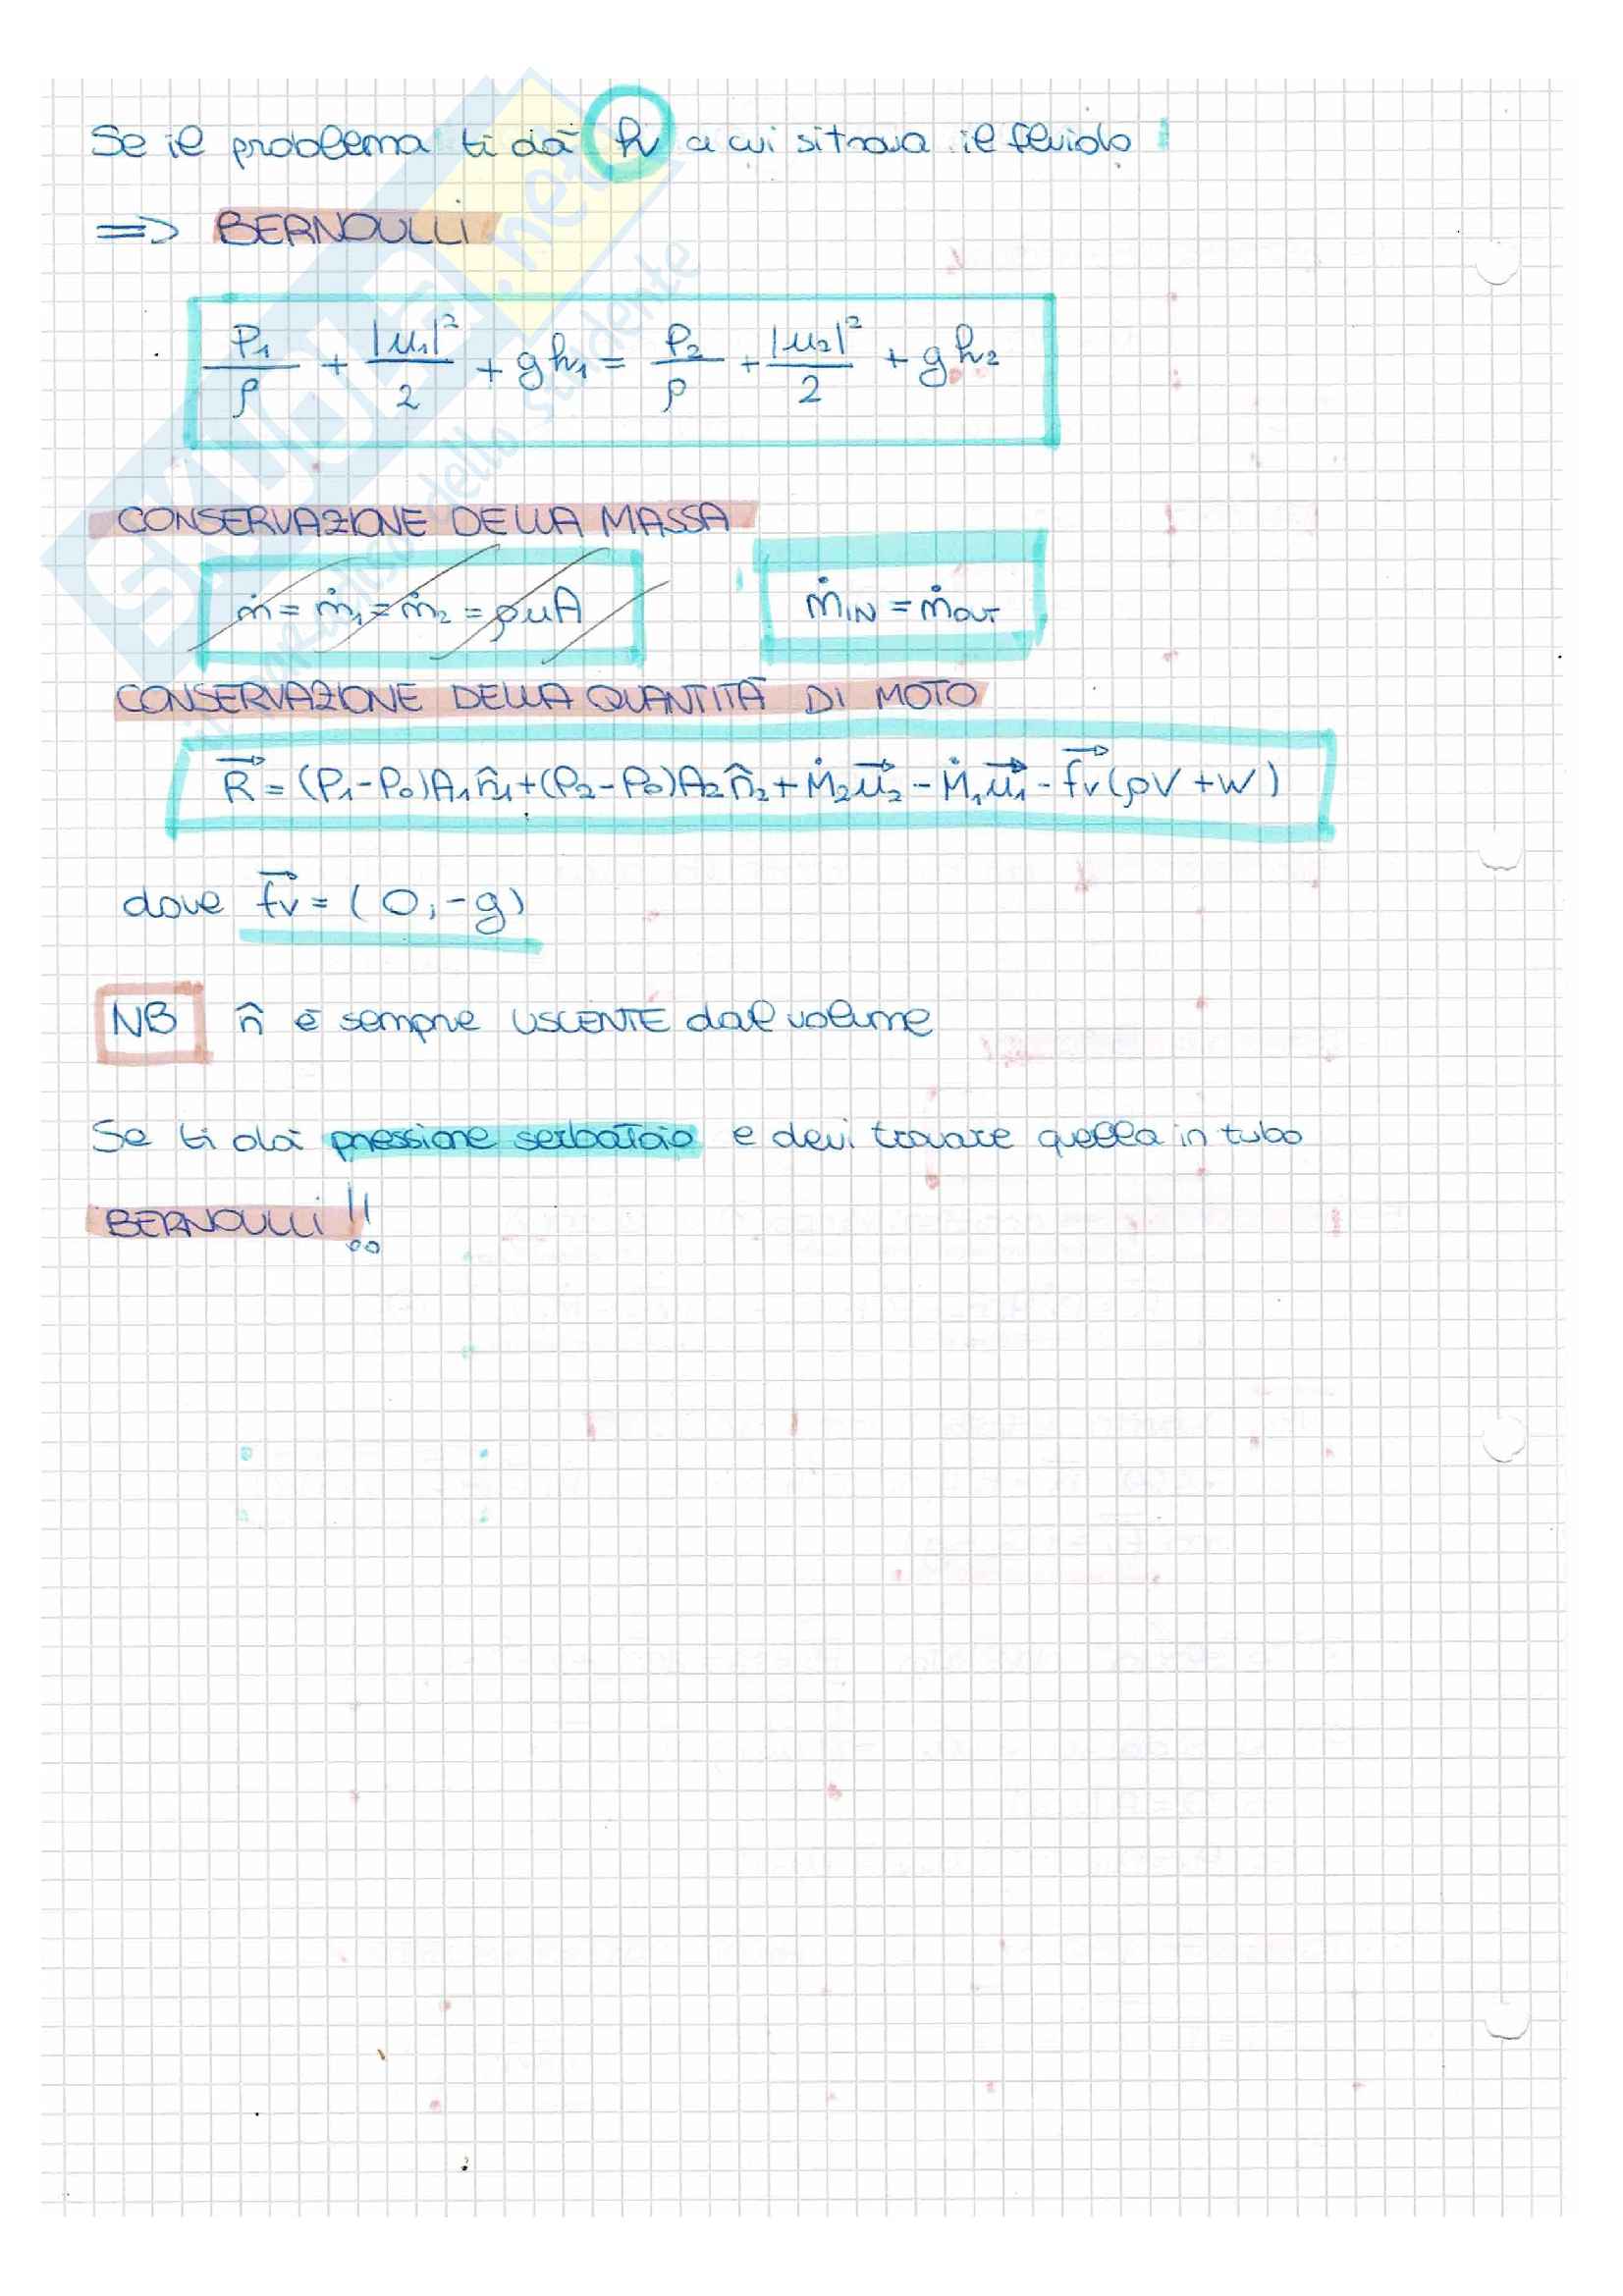 Se il problema ti dà h a cui si trova il fluido
=> BERNOULLI
P₁/ρ + |u₁|²/2 + gh₁ = P₂/ρ + |u₂|²/2 + gh₂
CONSERVAZIONE DELLA MASSA
ṁ = ṁ₁ = ṁ₂ = ρuA ṁIN = ṁOUT
CONSERVAZIONE DELLA QUANTITÀ DI MOTO
R⃗ = (P₁-P₀)A₁n̂₁+(P₂-P₀)A₂n̂₂+Ṁ₂u⃗₂-Ṁ₁u⃗₁-f⃗v(ρV+W)
dove f⃗v = (0,-g)
NB n̂ è sempre USCENTE dal volume
Se ti dà pressione serbatoio e devi trovare quella in tubo
BERNOULLI!!
SKUOLA.net
dello studente